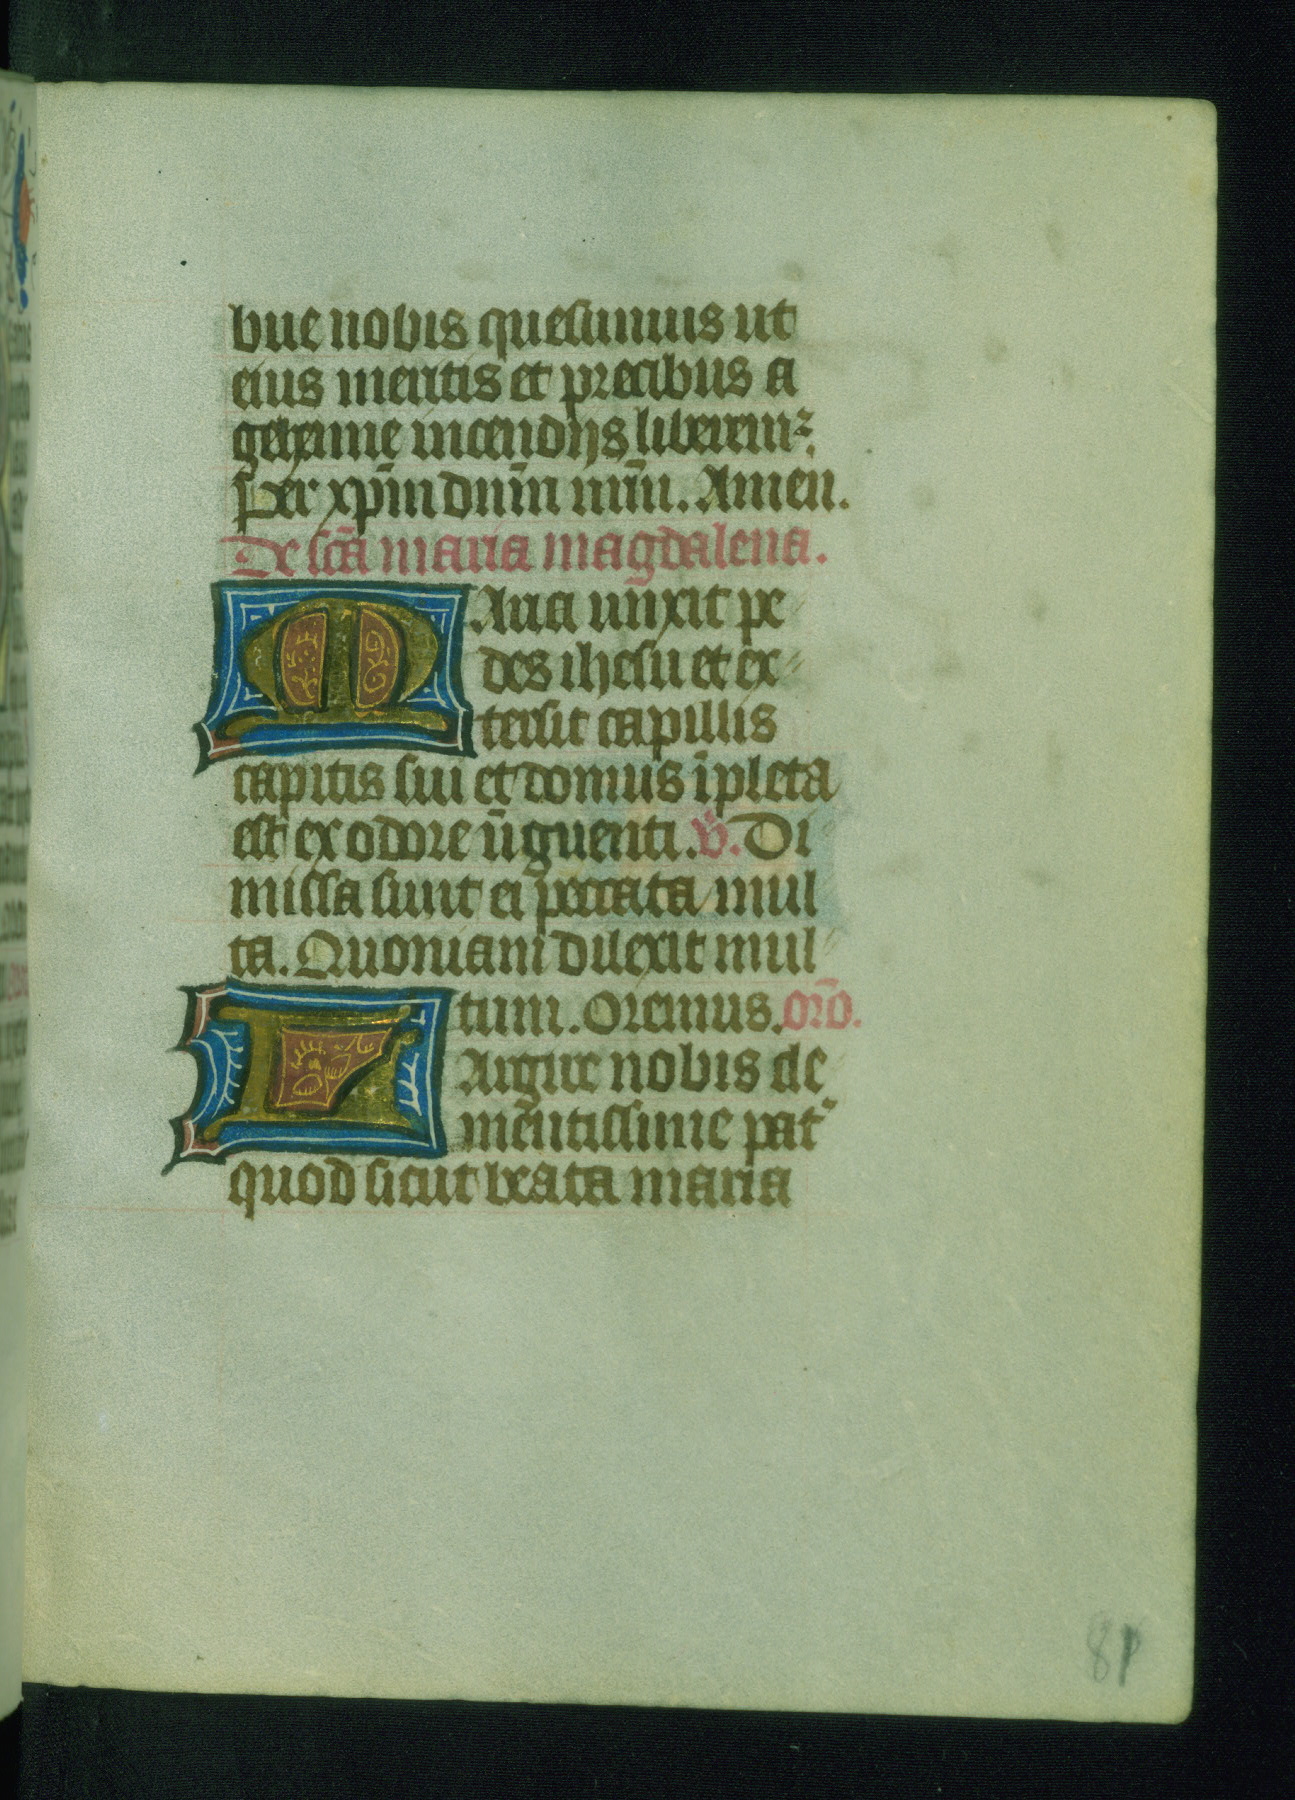 bue nobis quesumus ut
eius meritis et precibus a
gehenne incendijs liberemꝰ.
Per xp̄m dn̄m nr̄m. Amen.
De sc̄a maria magdalena.
MAria unxit pe
des ihesu et ex
tersit capillis
capitis sui et domus īpleta
est ex odore ūguenti. v̄. Di
missa sunt ei peccata mul
ta. Quoniam dilexit mul
tum. Oremus. or̄o.
LArgire nobis cle
mētissime pat᷑
quod sicut beata maria
81